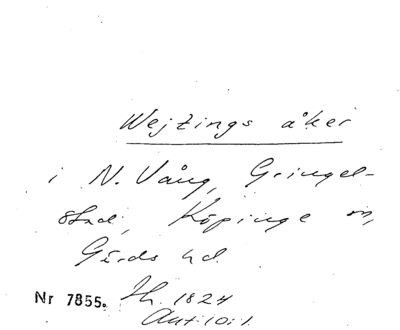 Wejtings åker
i N. Vång, Gringel-
stad, Köpinge sn,
Gärds hd.
Nr 7855. Th. 1824
Ant. 10:1.